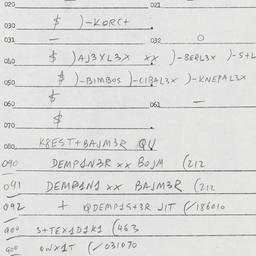 020 021
030 $ )-KORC+
031 — 032 0
040 $ )AJ3XL3X XX )-BERL3X )-S+L
050 $ )-BIMBOS )-CIBAL3X )-KNEPAL3X
060 $ 061 —
070 $
080 K8EST+BAJM3R QV
090 DEMP1N3R XX BOJM (212
091 DEMP1N1 XX BAJM3R (212
092 + QDEMP1S+3R JIT (/186010
S+TEX1D1K1 (463
900 QWX1T (/031070